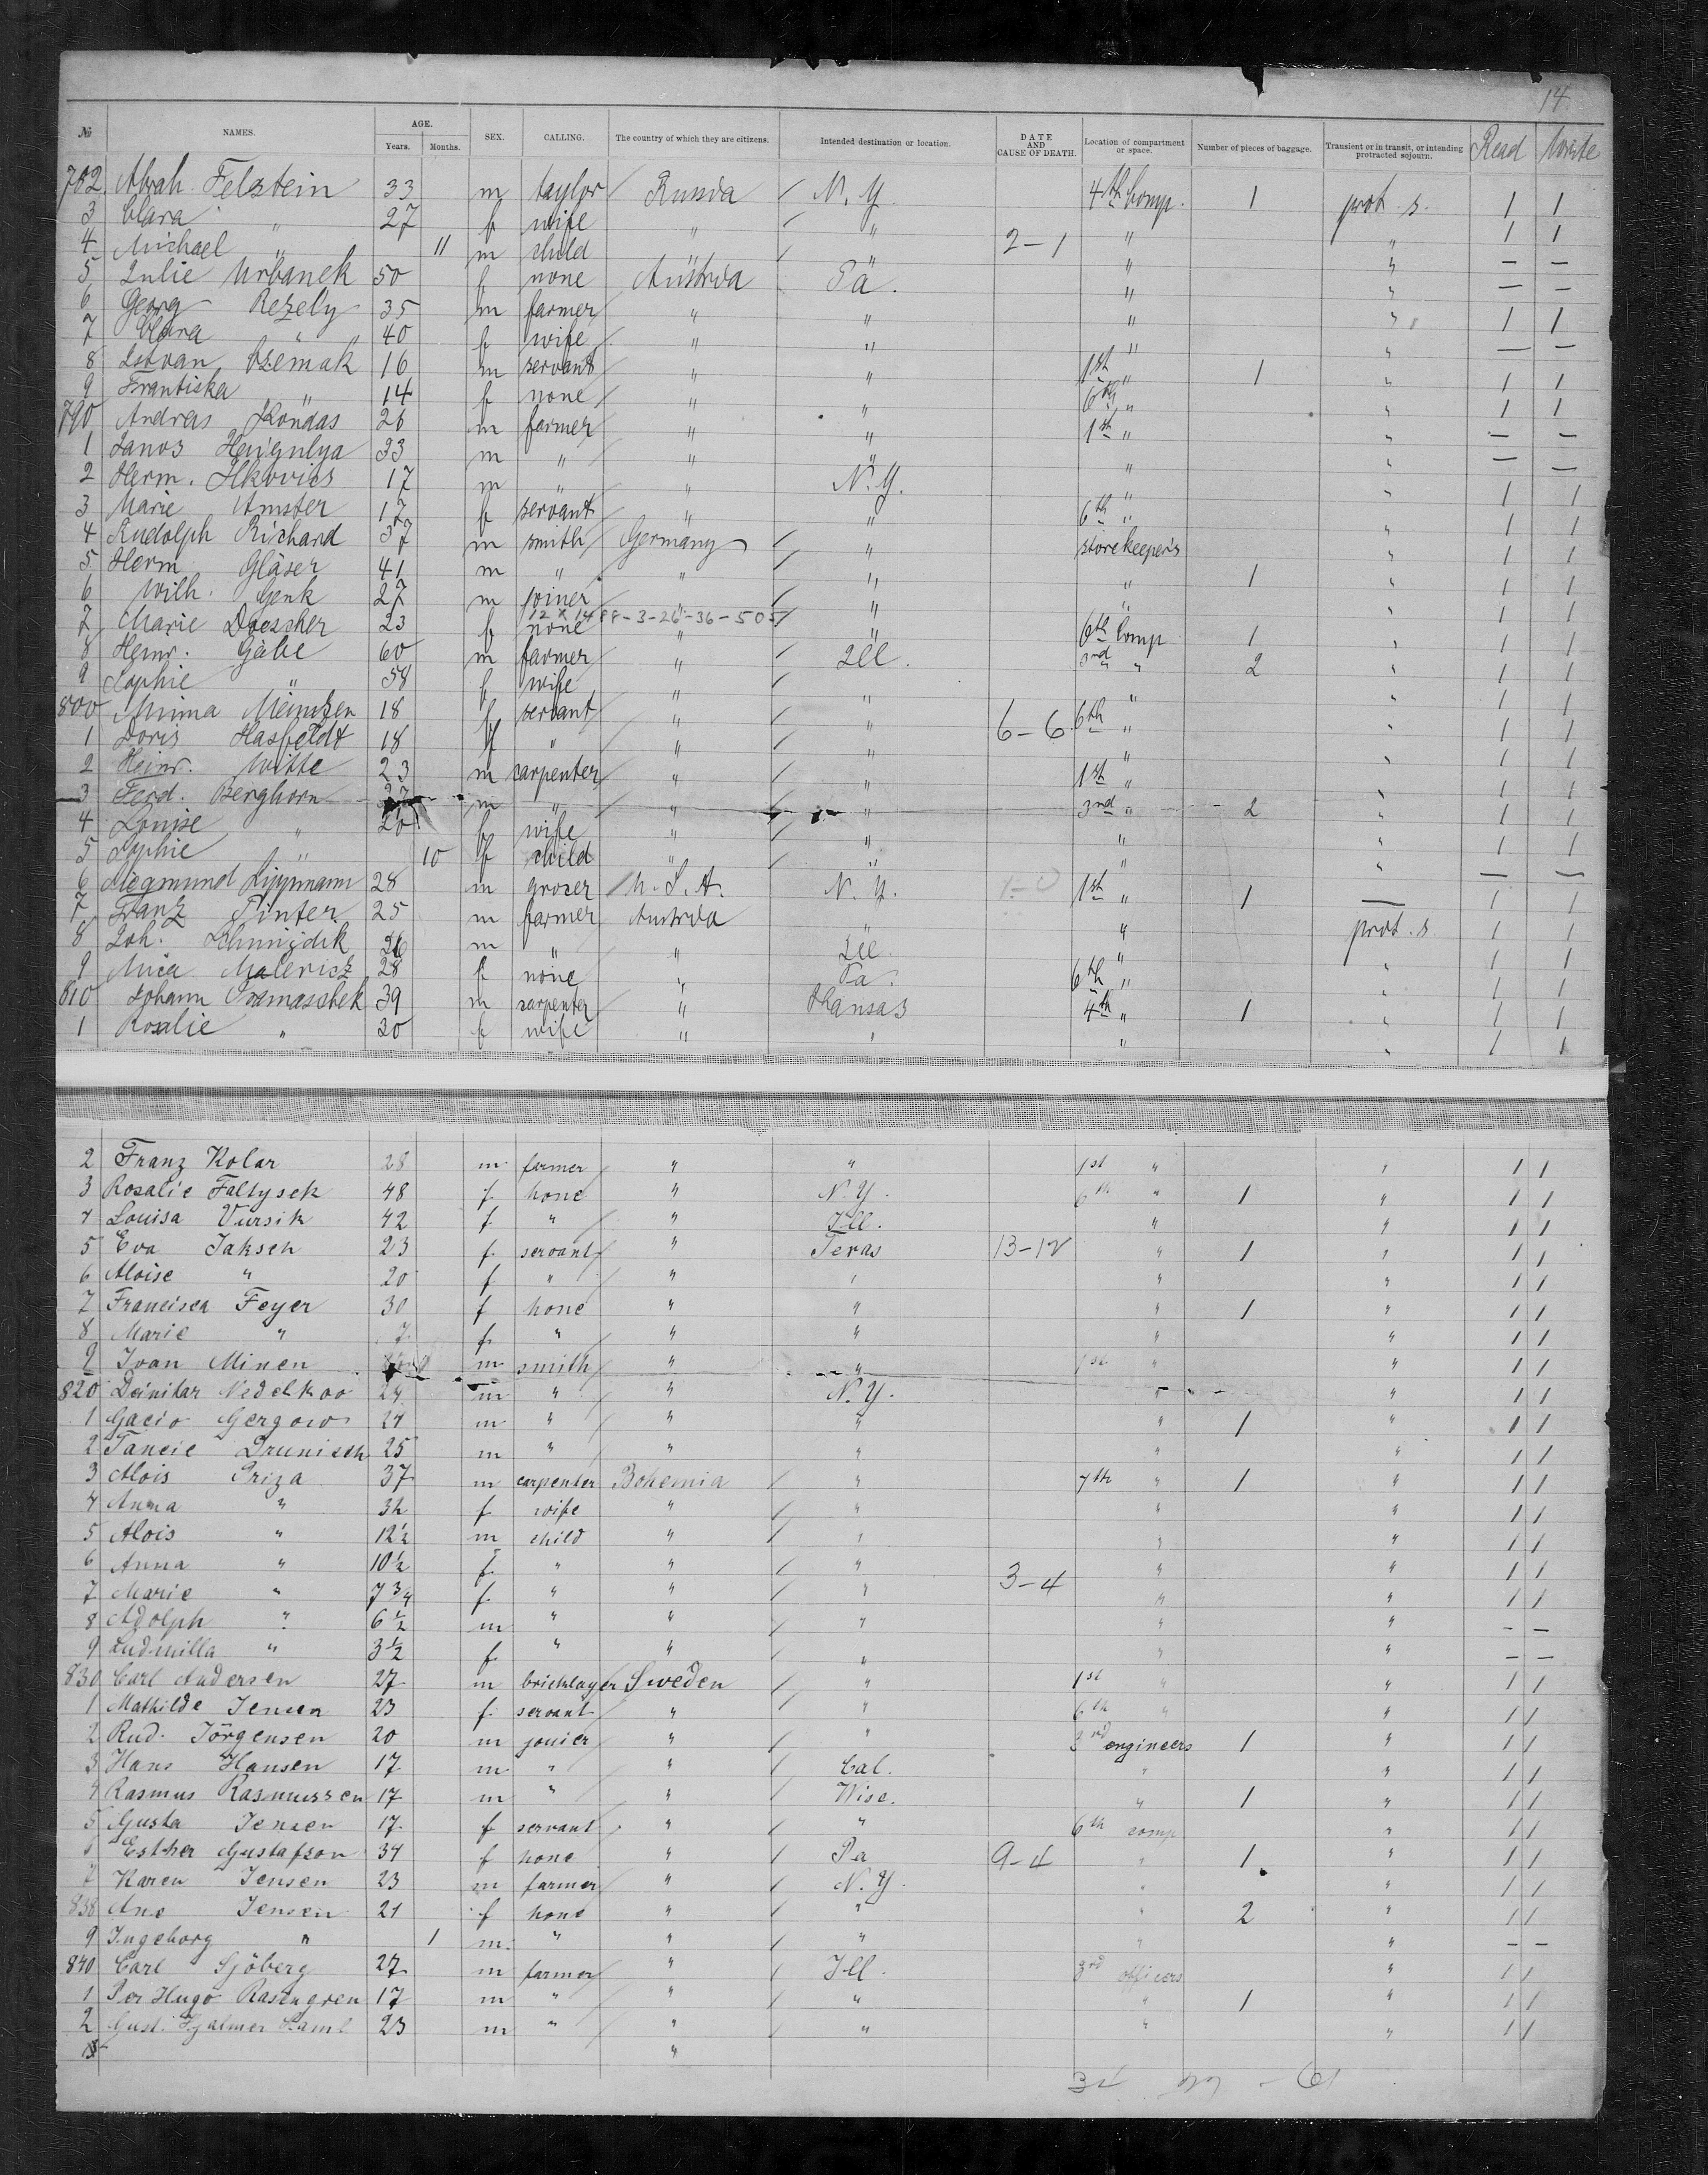 14
№ NAMES. AGE. Years. Months. SEX. CALLING. The country of which they are citizens. Intended destination or location. DATE AND CAUSE OF DEATH. Location of compartment or space. Number of pieces of baggage. Transient or in transit, or intending protracted sojourn. Read Write
782 Abrah. Felstein 33 m taylor Russia N.Y. 4th Comp. 1 prot. s. 1 1
3 Clara " 27 f wife " " " " 1 1
4 Michael " 11 m child " " 2-1 " " — —
5 Julie Urbanek 50 f none Austria Pa. " " — —
6 Georg Rezely 35 m farmer " " " " 1 1
7 Clara " 40 f wife " " " " — —
8 Istvan Czemak 16 m servant " " 1st " 1 " 1 1
9 Frantiska " 14 f none " " 6th " " 1 1
790 Andras Kondas 26 m farmer " " 1st " " — —
1 Janos 33 m " " " " " — —
2 Herm. Ilkovics 17 m " " N.Y. " " 1 1
3 Marie Amster 17 f servant " " 6th " " 1 1
4 Rudolph Richard 37 m smith Germany " storekeepers " 1 1
5 Herm Gläser 41 m " " " " 1 " 1 1
6 Wilh. Genk 27 m joiner " " " " 1 1
7 Marie Doescher 23 f none " " 6th Comp 1 " 1 1
8 Heinr. Gäbe 60 m farmer " Ill. 3rd " 2 " 1 1
9 Sophie " 58 f wife " " " " 1 1
800 Minna Meintzen 18 f servant " " 6-6 6th " " 1 1
1 Doris Hasfeldt 18 f " " " " " 1 1
2 Heinr. Witte 23 m carpenter " " 1st " " 1 1
3 Ferd. Berghorn 27 m " " " 3rd " 2 " 1 1
4 Louise " 20 f wife " " " " 1 1
5 Sophie " 10 f child " " " " — —
6 Siegmund Lippmann 28 m grocer U.S.A. N.Y. 1st " 1 — 1 1
7 Franz Pinter 25 m farmer Austria " " prot. s 1 1
8 Joh. 26 m " " Ill. " " 1 1
9 Mica Malericz 28 f none " Pa. 6th " " 1 1
810 Johann 39 m carpenter " Kansas 4th " 1 " 1 1
1 Rosalie " 20 f wife " " " " 1 1
2 Franz Kolar 28 m farmer " " 1st " " 1 1
3 Rosalie Faltysek 48 f none " N.Y. 6th " 1 " 1 1
4 Louisa Vursik 42 f " " Ill. " " 1 1
5 Eva Jaksch 23 f servant " Texas 13-12 " 1 " 1 1
6 Aloise " 20 f " " " " " 1 1
7 Francisca Feyer 30 f none " " " 1 " 1 1
8 Marie " 7 f " " " " " 1 1
9 Ivan Minen m smith " " 1st " " 1 1
820 Deinitar Nedelkoo 24 m " " N.Y. " " 1 1
1 Gacio Gergow 24 m " " " " 1 " 1 1
2 Tancie Drunisch 25 m " " " " " 1 1
3 Alois Priza 37 m carpenter Bohemia " 4th " 1 " 1 1
4 Anna " 32 f wife " " " " 1 1
5 Alois " 12½ m child " " " " 1 1
6 Anna " 10½ f " " " " " 1 1
7 Marie " 7¾ f " " " 3-4 " " 1 1
8 Adolph " 6½ m " " " " " — —
9 Ludmilla " 3½ f " " " " " — —
830 Carl Andersen 27 m bricklayer Sweden " 1st " " 1 1
1 Mathilde Jensen 23 f servant " " 6th " " 1 1
2 Rud. Jörgensen 20 m jouier " " 3rd engineers 1 " 1 1
3 Hans Hansen 17 m " " Cal. " " 1 1
4 Rasmus Rasmussen 17 m " " Wisc. " 1 " 1 1
5 Gusta Jensen 17 f servant " " 6th comp " 1 1
6 Esther Gustafson 34 f none " Pa 9-4 " 1 " 1 1
7 Karen Jensen 23 m farmer " N.Y. " " 1 1
838 Ane Jensen 21 f none " " " 2 " 1 1
9 Ingeborg " 1 m " " " " " — —
840 Carl Sjöberg 27 m farmer " Ill. 3rd officers " 1 1
1 Per Hugo Rosengren 17 m " " " " 1 " 1 1
2 Gust. Hjalmer 23 m " " " " " 1 1
3 "